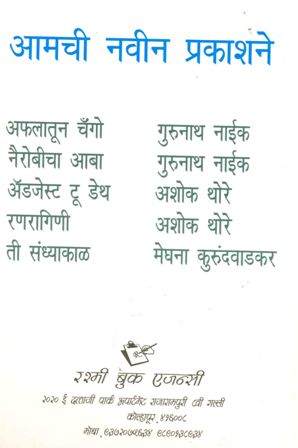 आमची नवीन प्रकाशने
अफलातून चँगो गुरुनाथ नाईक
नैरोबीचा आबा गुरुनाथ नाईक
ॲडजेस्ट टू डेथ अशोक थोरे
रणरागिणी अशोक थोरे
ती संध्याकाळ मेघना कुरुंदवाडकर
रश्मी बुक एजन्सी
२०२० ई दत्ताजी पार्क अपार्टमेंट राजारामपुरी ८वी गल्ली
कोल्हापूर ४१६००८